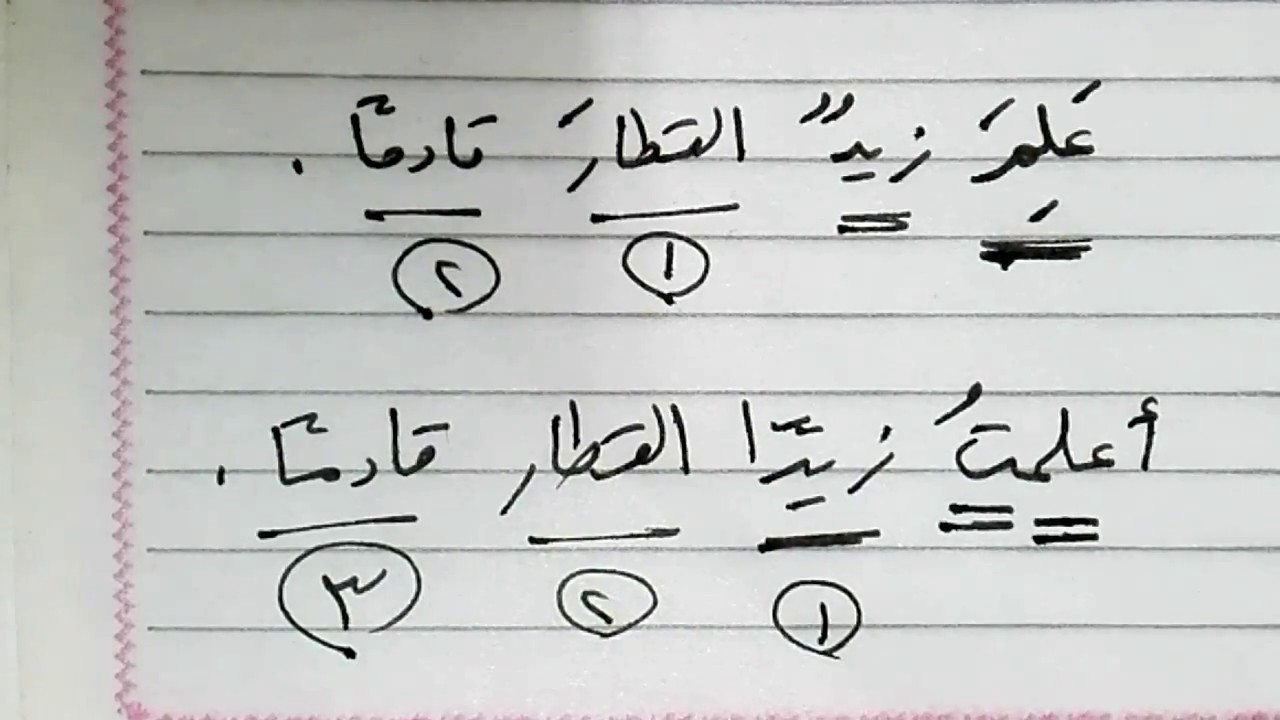 عَلمَ زيدٌ القطارَ قادمًا .
١ ٢
أعلمتُ زيدًا القطار قادمًا .
١ ٢ ٣